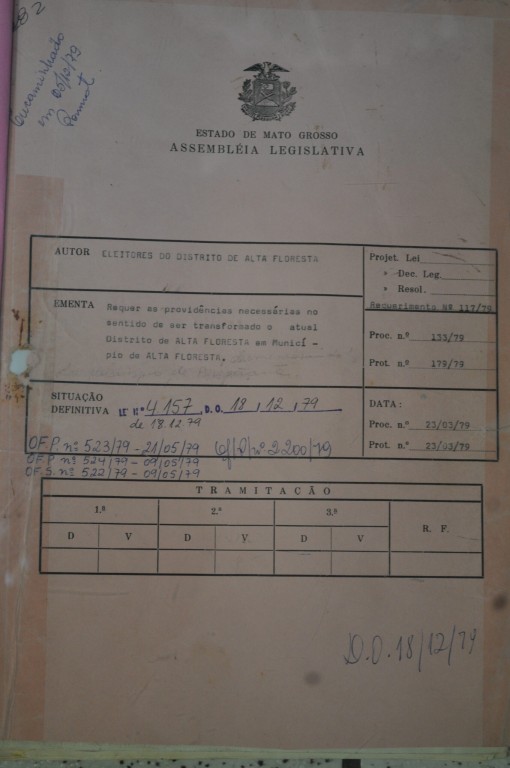 Encaminhado
em 05/10/79
ESTADO DE MATO GROSSO
ASSEMBLÉIA LEGISLATIVA
AUTOR ELEITORES DO DISTRITO DE ALTA FLORESTA
Projet. Lei
» Dec. Leg.
» Resol.
Requerimento Nº 117/79
EMENTA Requer as providências necessárias no
sentido de ser transformado o atual
Distrito de ALTA FLORESTA em Municí -
pio de ALTA FLORESTA.
Proc. n.º 133/79
Prot. n.º 179/79
SITUAÇÃO
DEFINITIVA LEI Nº 4157, D.O. 18, 12, 79
de 18.12.79
DATA:
Proc. n.º 23/03/79
Prot. n.º 23/03/79
OF.P. nº 523/79 - 21/05/79
OF P nº 524/79 - 09/05/79
OF S. nº 522/79 - 09/05/79
TRAMITAÇÃO
1.ª 2.ª 3.ª R. F.
D V D V D V
D.O. 18/12/79